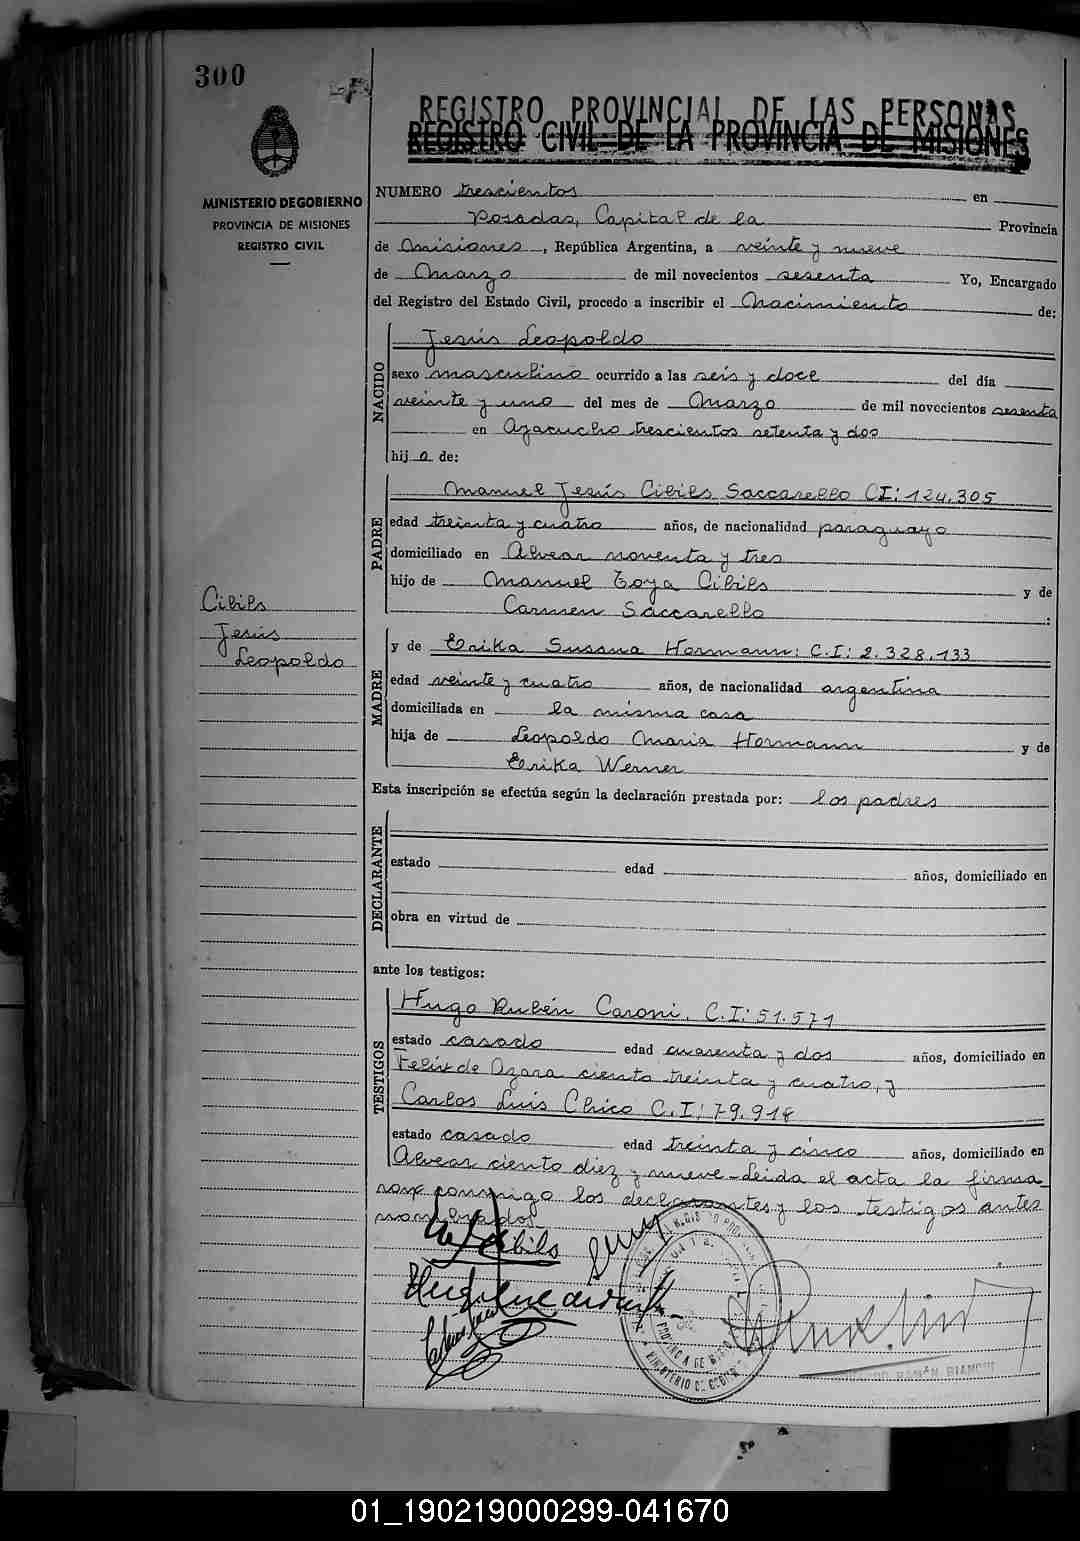 300
REGISTRO PROVINCIAL DE LAS PERSONAS
REGISTRO CIVIL DE LA PROVINCIA DE MISIONES
MINISTERIO DE GOBIERNO
PROVINCIA DE MISIONES
REGISTRO CIVIL
NUMERO trescientos en
Posadas, Capital de la Provincia
de Misiones, República Argentina, a veinte y nueve
de Marzo de mil novecientos sesenta Yo, Encargado
del Registro del Estado Civil, procedo a inscribir el Nacimiento de:
NACIDO
Jesús Leopoldo
sexo masculino ocurrido a las seis y doce del día
veinte y uno del mes de Marzo de mil novecientos sesenta
en Ayacucho trescientos setenta y dos
hij o de:
PADRE
Manuel Jesús Cibils Saccarello CI: 124.305
edad treinta y cuatro años, de nacionalidad paraguayo
domiciliado en Alvear noventa y tres
hijo de Manuel Toya Cibils y de
Carmen Saccarello :
Cibils
Jesús
Leopoldo
MADRE
y de Erika Susana Hormann: C.I: 2.328.133
edad veinte y cuatro años, de nacionalidad argentina
domiciliada en la misma casa
hija de Leopoldo Maria Hormann y de
Erika Werner
Esta inscripción se efectúa según la declaración prestada por: los padres
DECLARANTE
estado edad años, domiciliado en
obra en virtud de
ante los testigos:
TESTIGOS
Hugo Rubén Caroni. C.I: 51.571
estado casado edad cuarenta y dos años, domiciliado en
Felix de Azara ciento treinta y cuatro, y
Carlos Luis Chico C.I: 79.918
estado casado edad treinta y cinco años, domiciliado en
Alvear ciento diez y nueve - Leida el acta la firma
ron conmigo los declarantes y los testigos antes
nombrados
Cibils
MINISTERIO DE GOBIERNO
RAMÓN BIANCHI
01_190219000299-041670